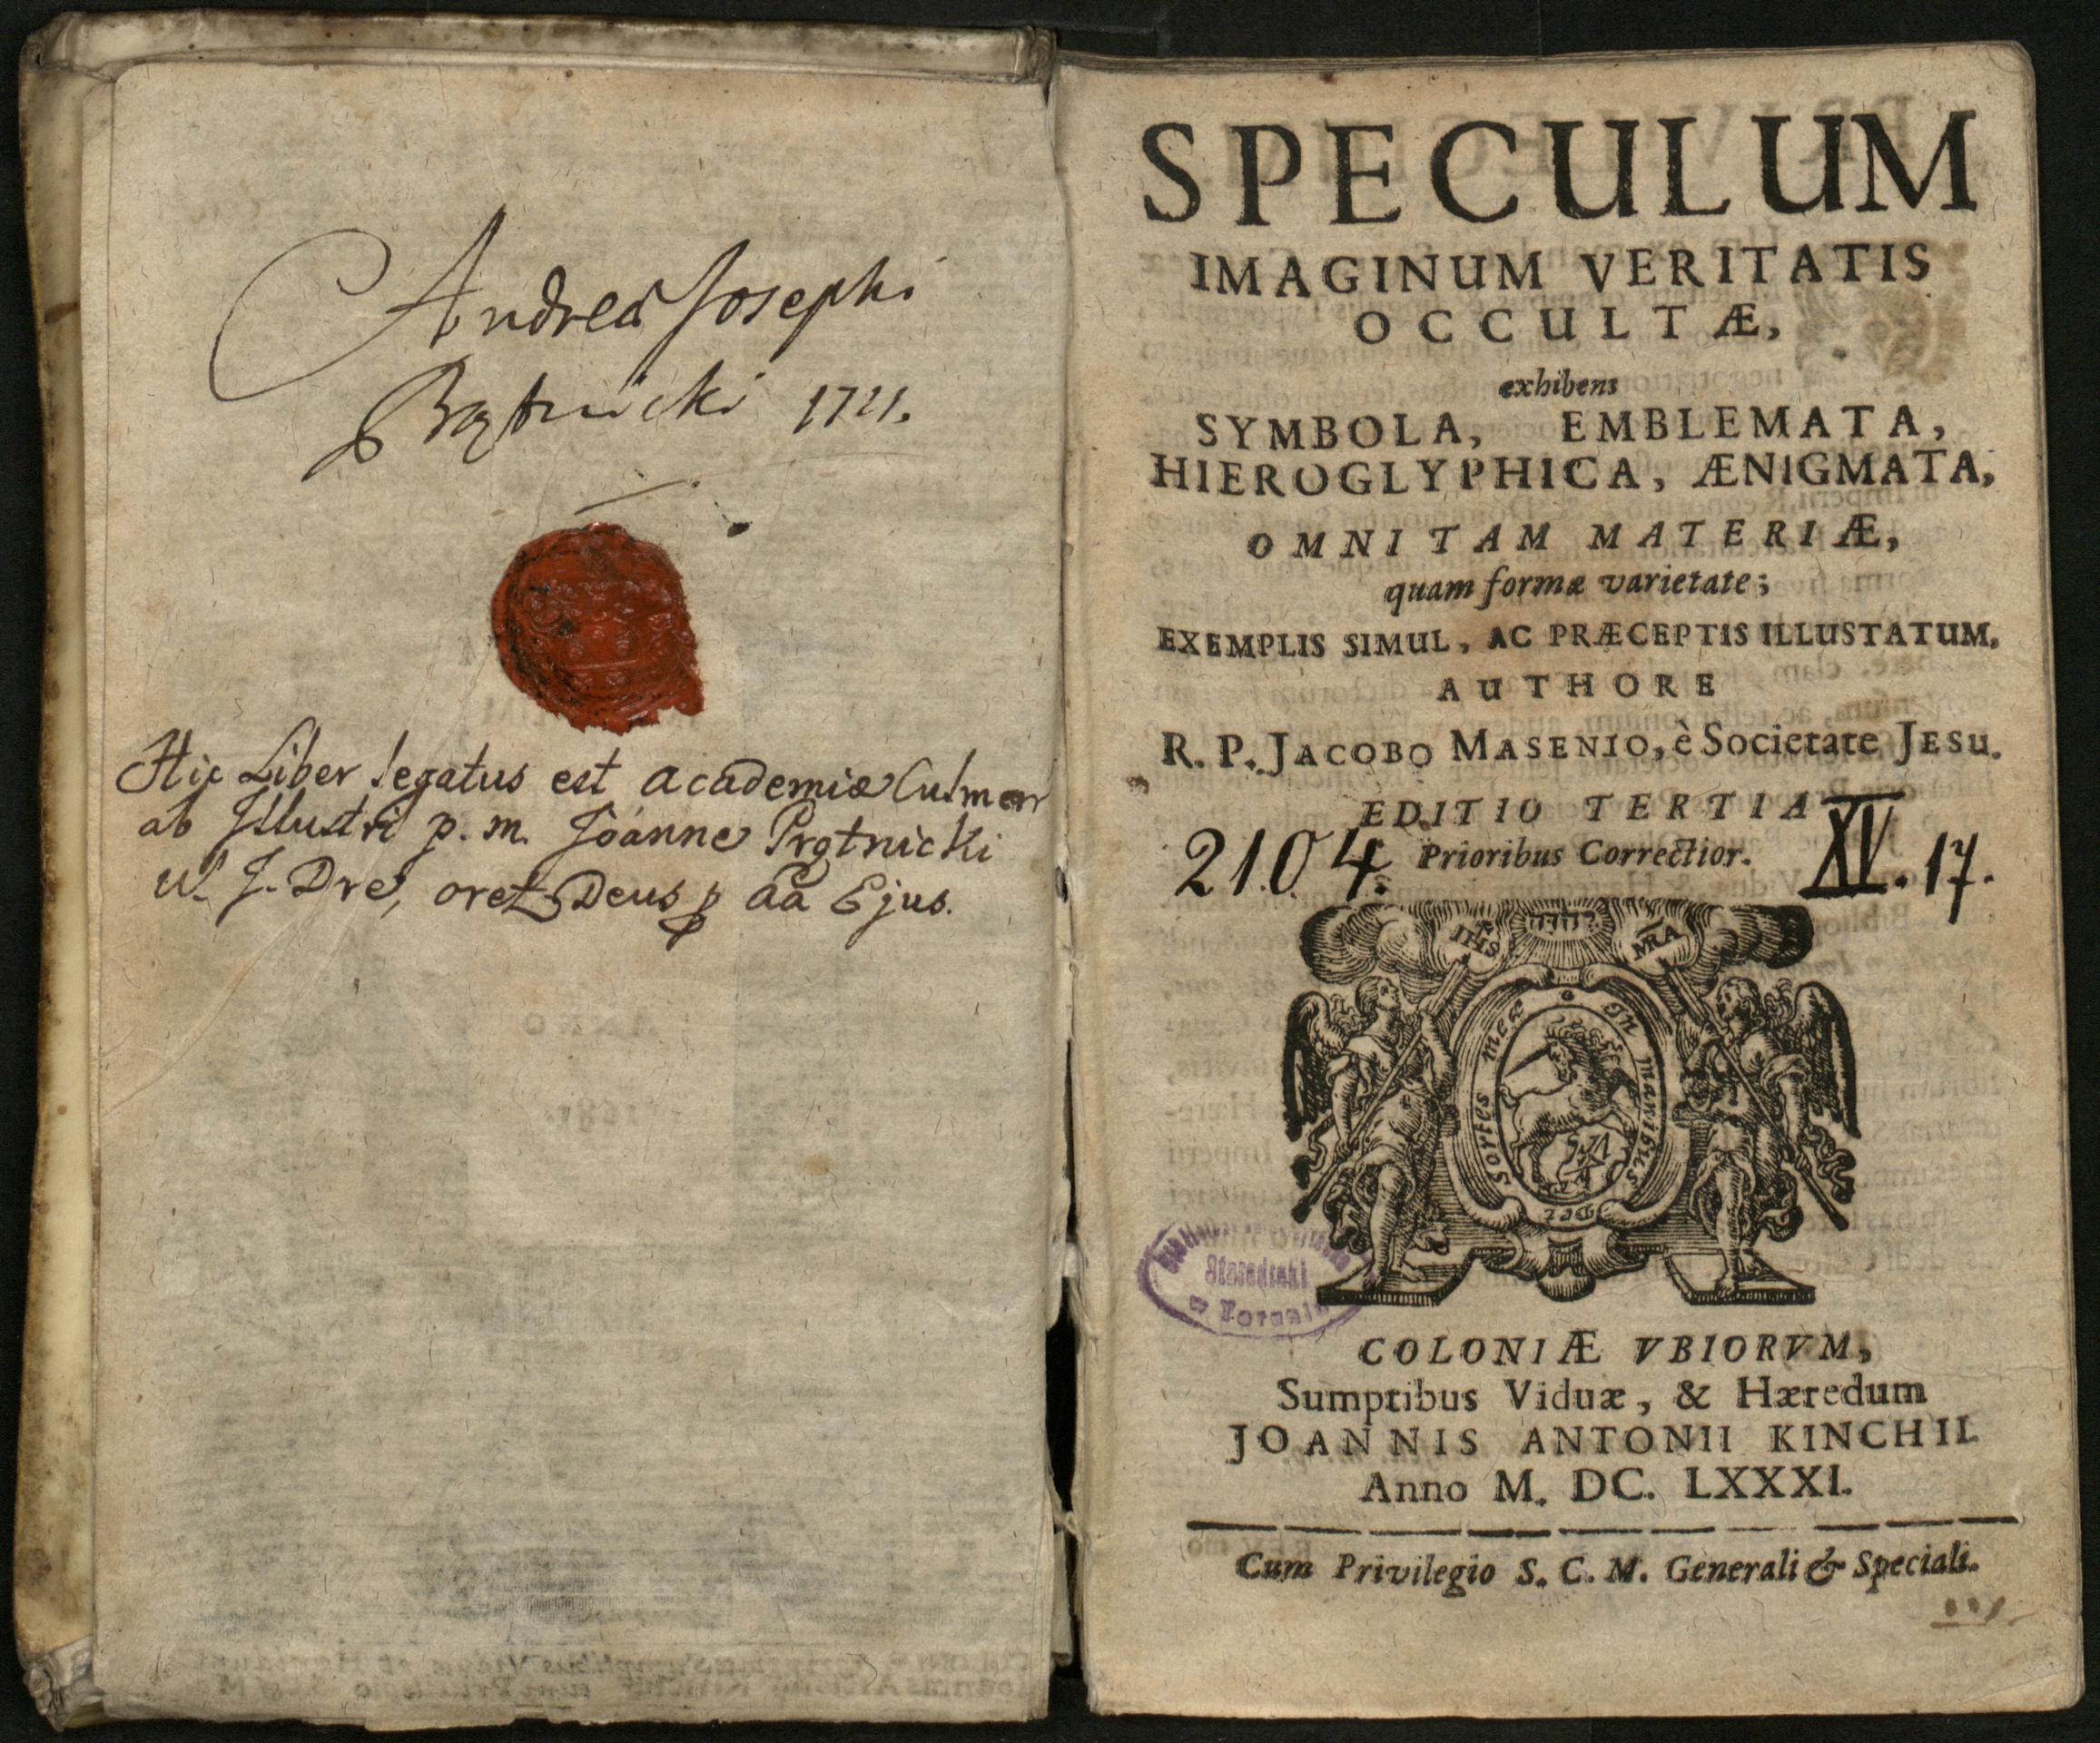 Andreæ Josephi
Prątnicki 1721.
Hic Liber legatus est academiæ Culmen
ab Illustri p. m. Joanne Prątnicki
U. J. Dre, oret Deus p aa Ejus.
SPECULUM
IMAGINUM VERITATIS
OCCULTÆ,
exhibens
SYMBOLA, EMBLEMATA,
HIEROGLYPHICA, ÆNIGMATA,
OMNI TAM MATERIÆ,
quam formæ varietate;
EXEMPLIS SIMUL, AC PRÆCEPTIS ILLUSTATUM.
AUTHORE
R. P. JACOBO MASENIO, è Societate JESU.
EDITIO TERTIA
2104. Prioribus Correctior. XV. 17.
IHS יהוה MRA
In manibus Dei sortes meæ
COLONIÆ VBIORVM,
Sumptibus Viduæ, & Hæredum
JOANNIS ANTONII KINCHII
Anno M. DC. LXXXI.
Cum Privilegio S. C. M. Generali & Speciali.